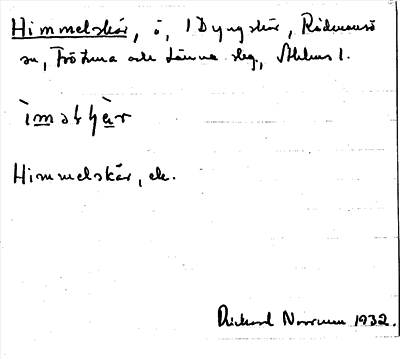 Himmelskär, ö, i Dyngskär, Rådmansö
sn, Frötuna och Länna slg, Sthlms l.
ìməʃʃä̀r
Himmelskär, ek.
Rickard Norrman 1932.